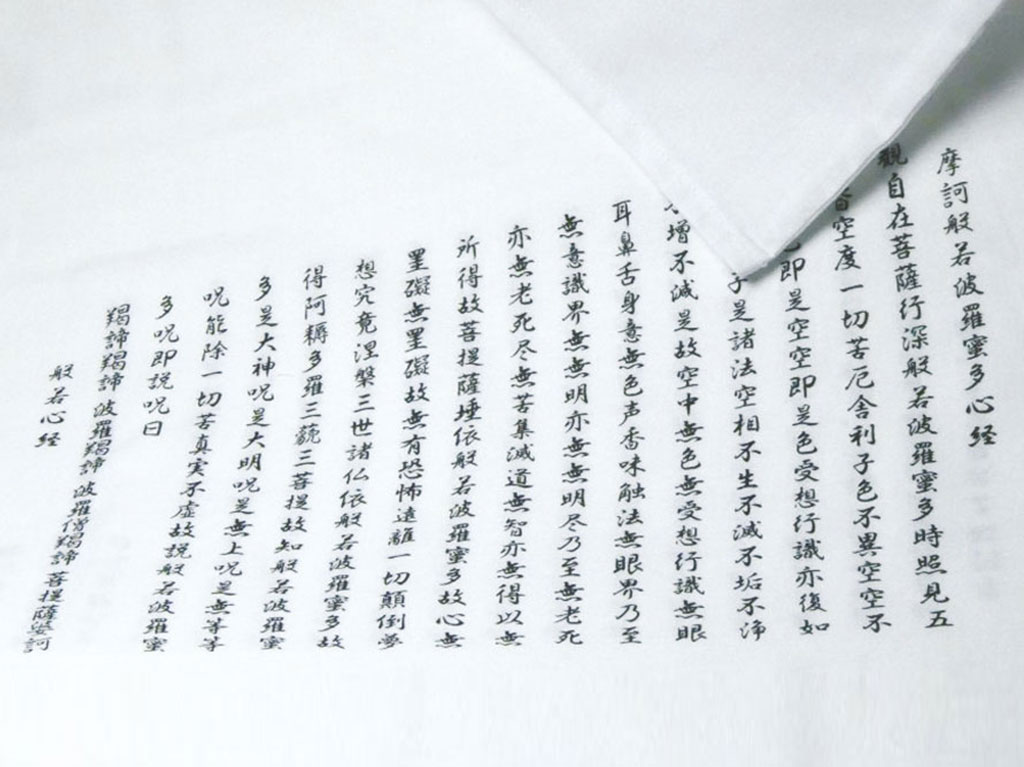 摩訶般若波羅蜜多心経
観自在菩薩行深般若波羅蜜多時照見五
皆空度一切苦厄舎利子色不異空空不
即是空空即是色受想行識亦復如
子是諸法空相不生不滅不垢不浄
増不滅是故空中無色無受想行識無眼
耳鼻舌身意無色声香味触法無眼界乃至
無意識界無無明亦無無明尽乃至無老死
亦無老死尽無苦集滅道無智亦無得以無
所得故菩提薩埵依般若波羅蜜多故心無
罣礙無罣礙故無有恐怖遠離一切顛倒夢
想究竟涅槃三世諸仏依般若波羅蜜多故
得阿耨多羅三藐三菩提故知般若波羅蜜
多是大神呪是大明呪是無上呪是無等等
呪能除一切苦真実不虚故説般若波羅蜜
多呪即説呪曰
羯諦羯諦 波羅羯諦 波羅僧羯諦 菩提薩婆訶
般若心経